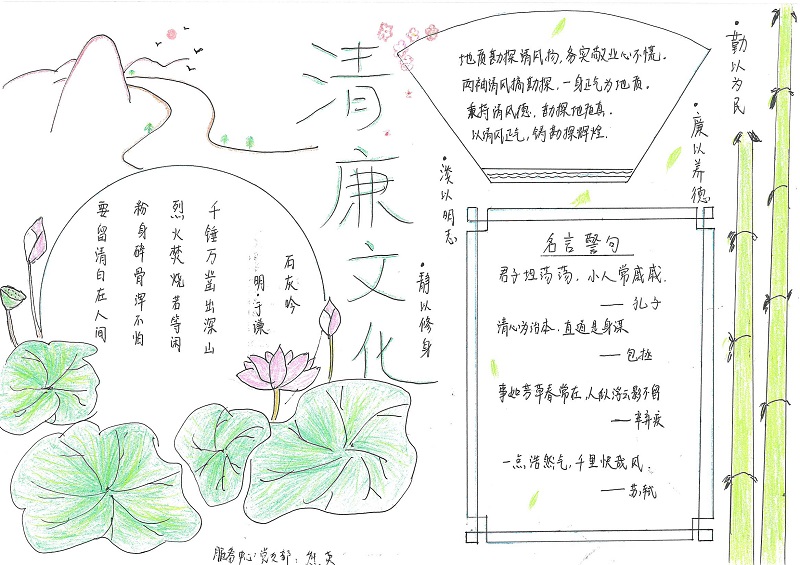 清廉文化
石灰吟
明·于谦
千锤万凿出深山
烈火焚烧若等闲
粉身碎骨浑不怕
要留清白在人间
地质勘探清风扬,务实敬业心不慌。
两袖清风搞勘探,一身正气为地质。
秉持清风德,勘探他
以清风正气,铸勘探辉煌.
·勤以为民
·廉以养德
·淡以明志
·静以修身
名言警句
君子坦荡荡,小人常戚戚.
——孔子
清心为治本,直道是身谋
——包拯
事如芳草春常在,人似浮云影不留
——辛弃疾
一点浩然气,千里快哉风.
——苏轼
服务中心党支部: